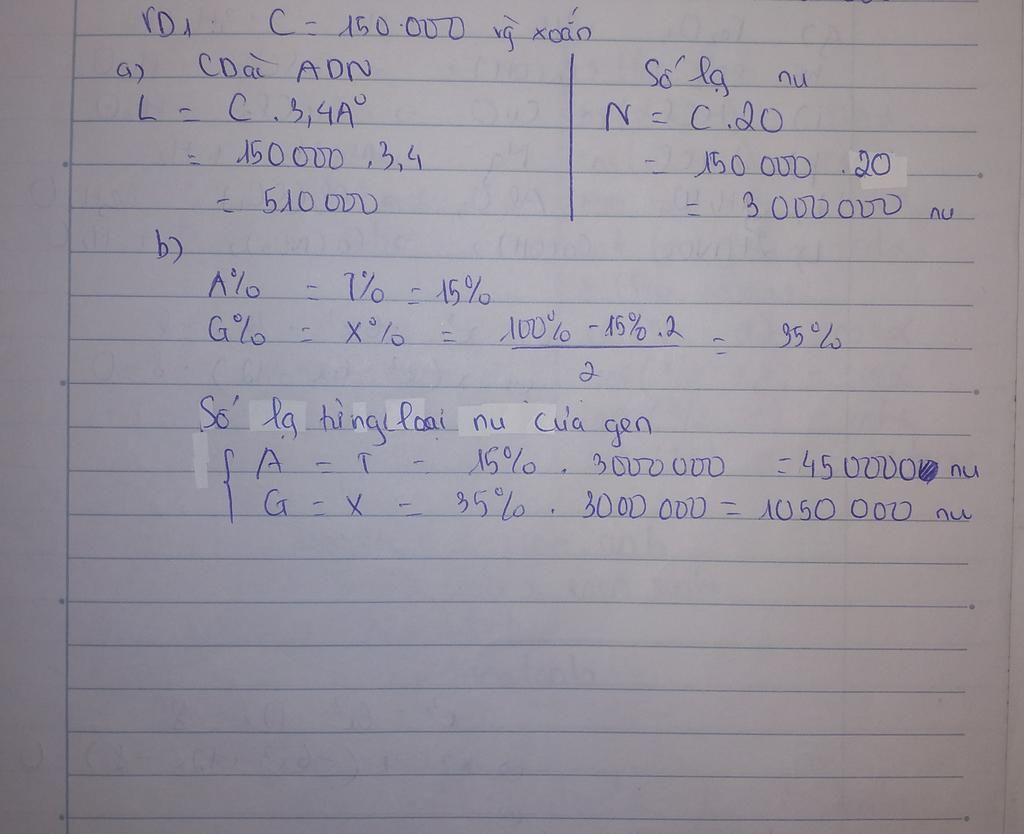 VD1: C = 150.000 vg xoắn
a) CDài ADN
L = C . 3,4A°
= 150000 . 3,4
= 510000
Số lg nu
N = C . 20
= 150 000 . 20
= 3 000 000 nu
b)
A% = T% = 15%
G% = X% = 100% - 15% . 2 / 2 = 35%
Số lg từng loại nu của gen
{ A = T = 15% . 3000000 = 450000 nu
G = X = 35% . 3000 000 = 1050 000 nu